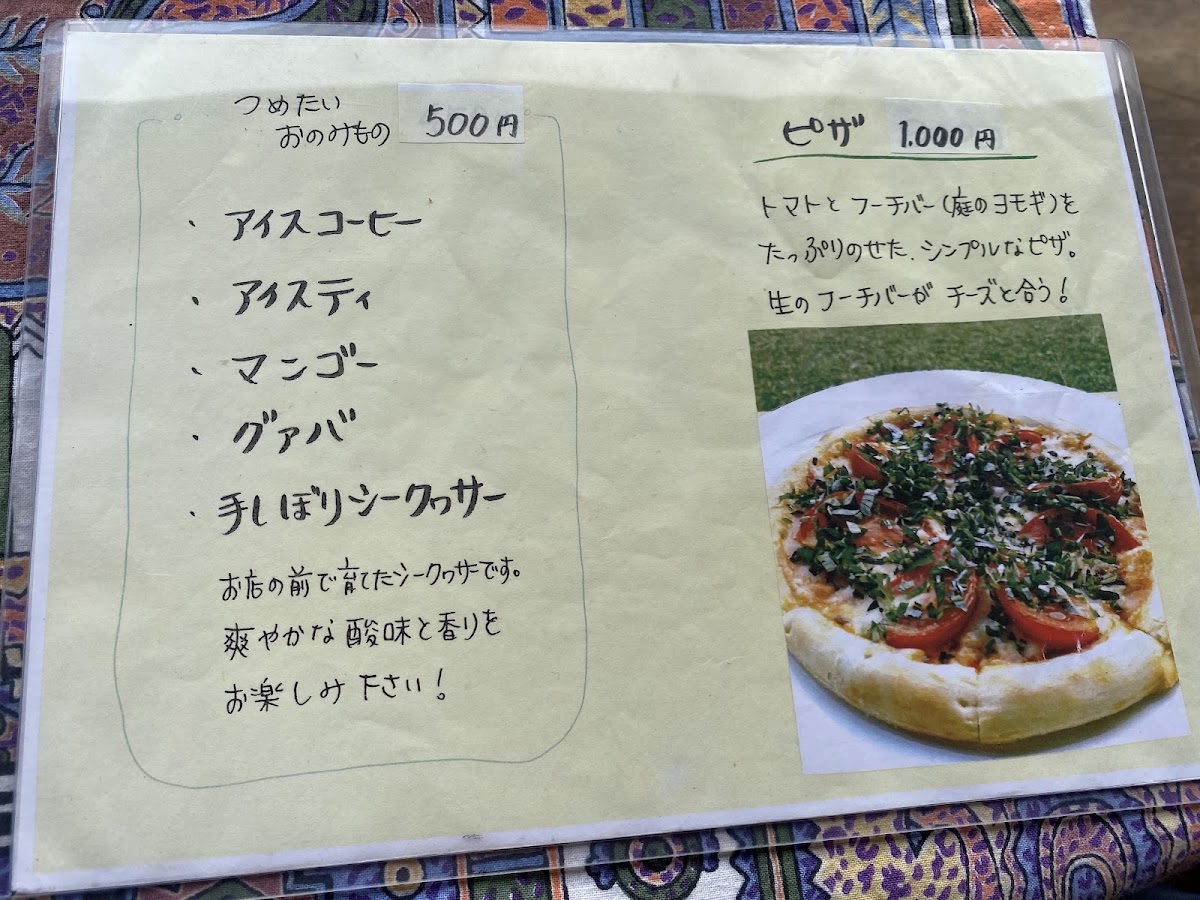 つめたい
おのみもの 500円
・アイスコーヒー
・アイスティ
・マンゴー
・グァバ
・手しぼりシークヮサー
お店の前で育てたシークヮサーです。
爽やかな酸味と香りを
お楽しみ下さい！
ピザ 1.000円
トマトとフーチバー(庭のヨモギ)を
たっぷりのせた、シンプルなピザ。
生のフーチバーがチーズと合う！